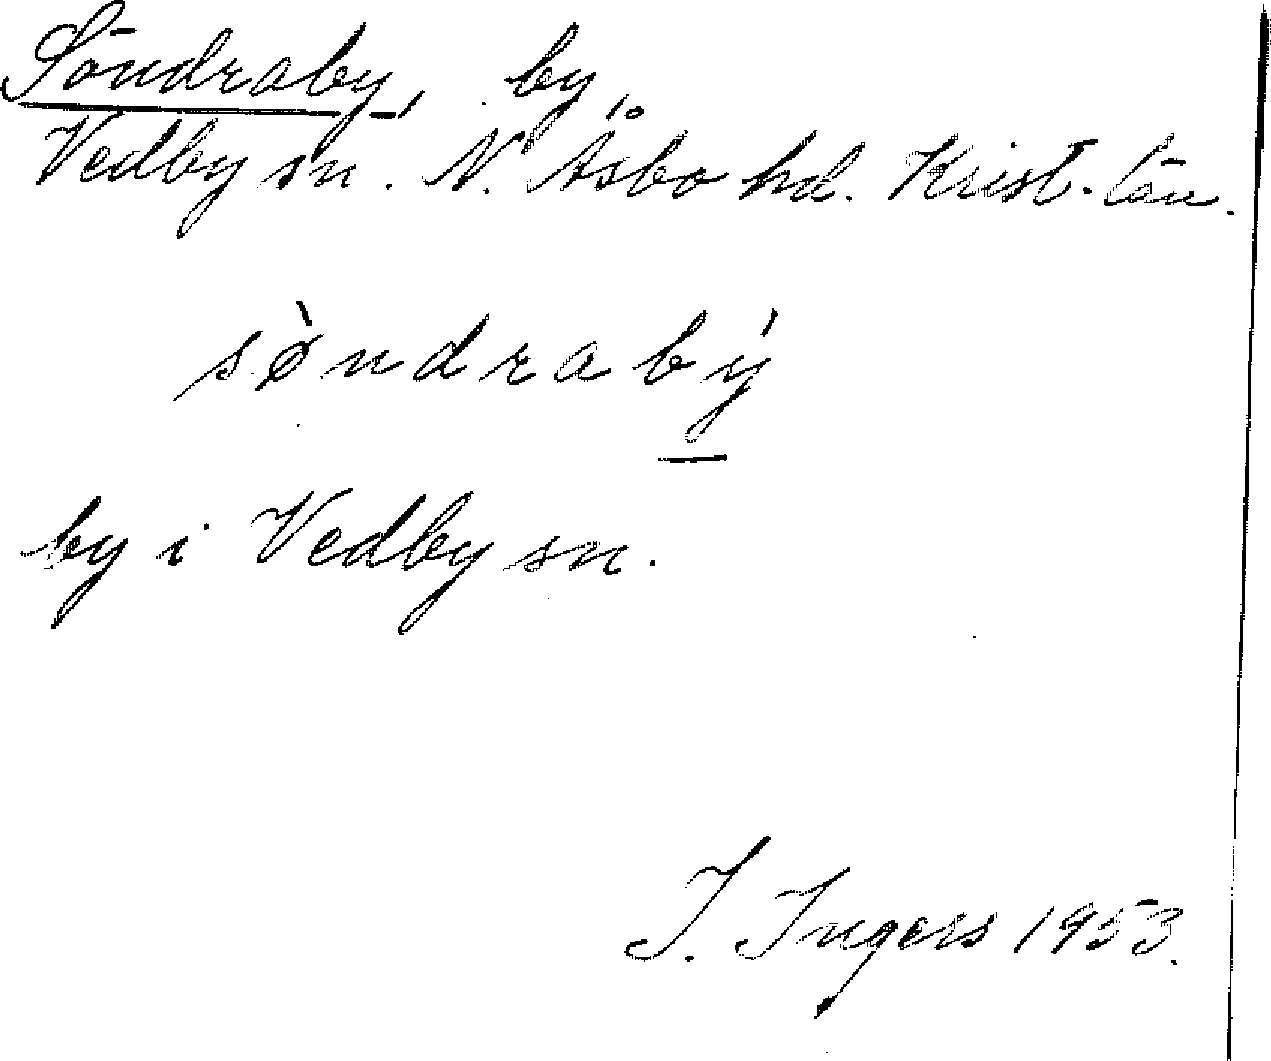 Söndraby, by,
Vedby sn. N. Åsbo hd. Krist. län.
sø̀ndrabý
by i Vedby sn.
I. Ingers 1953.